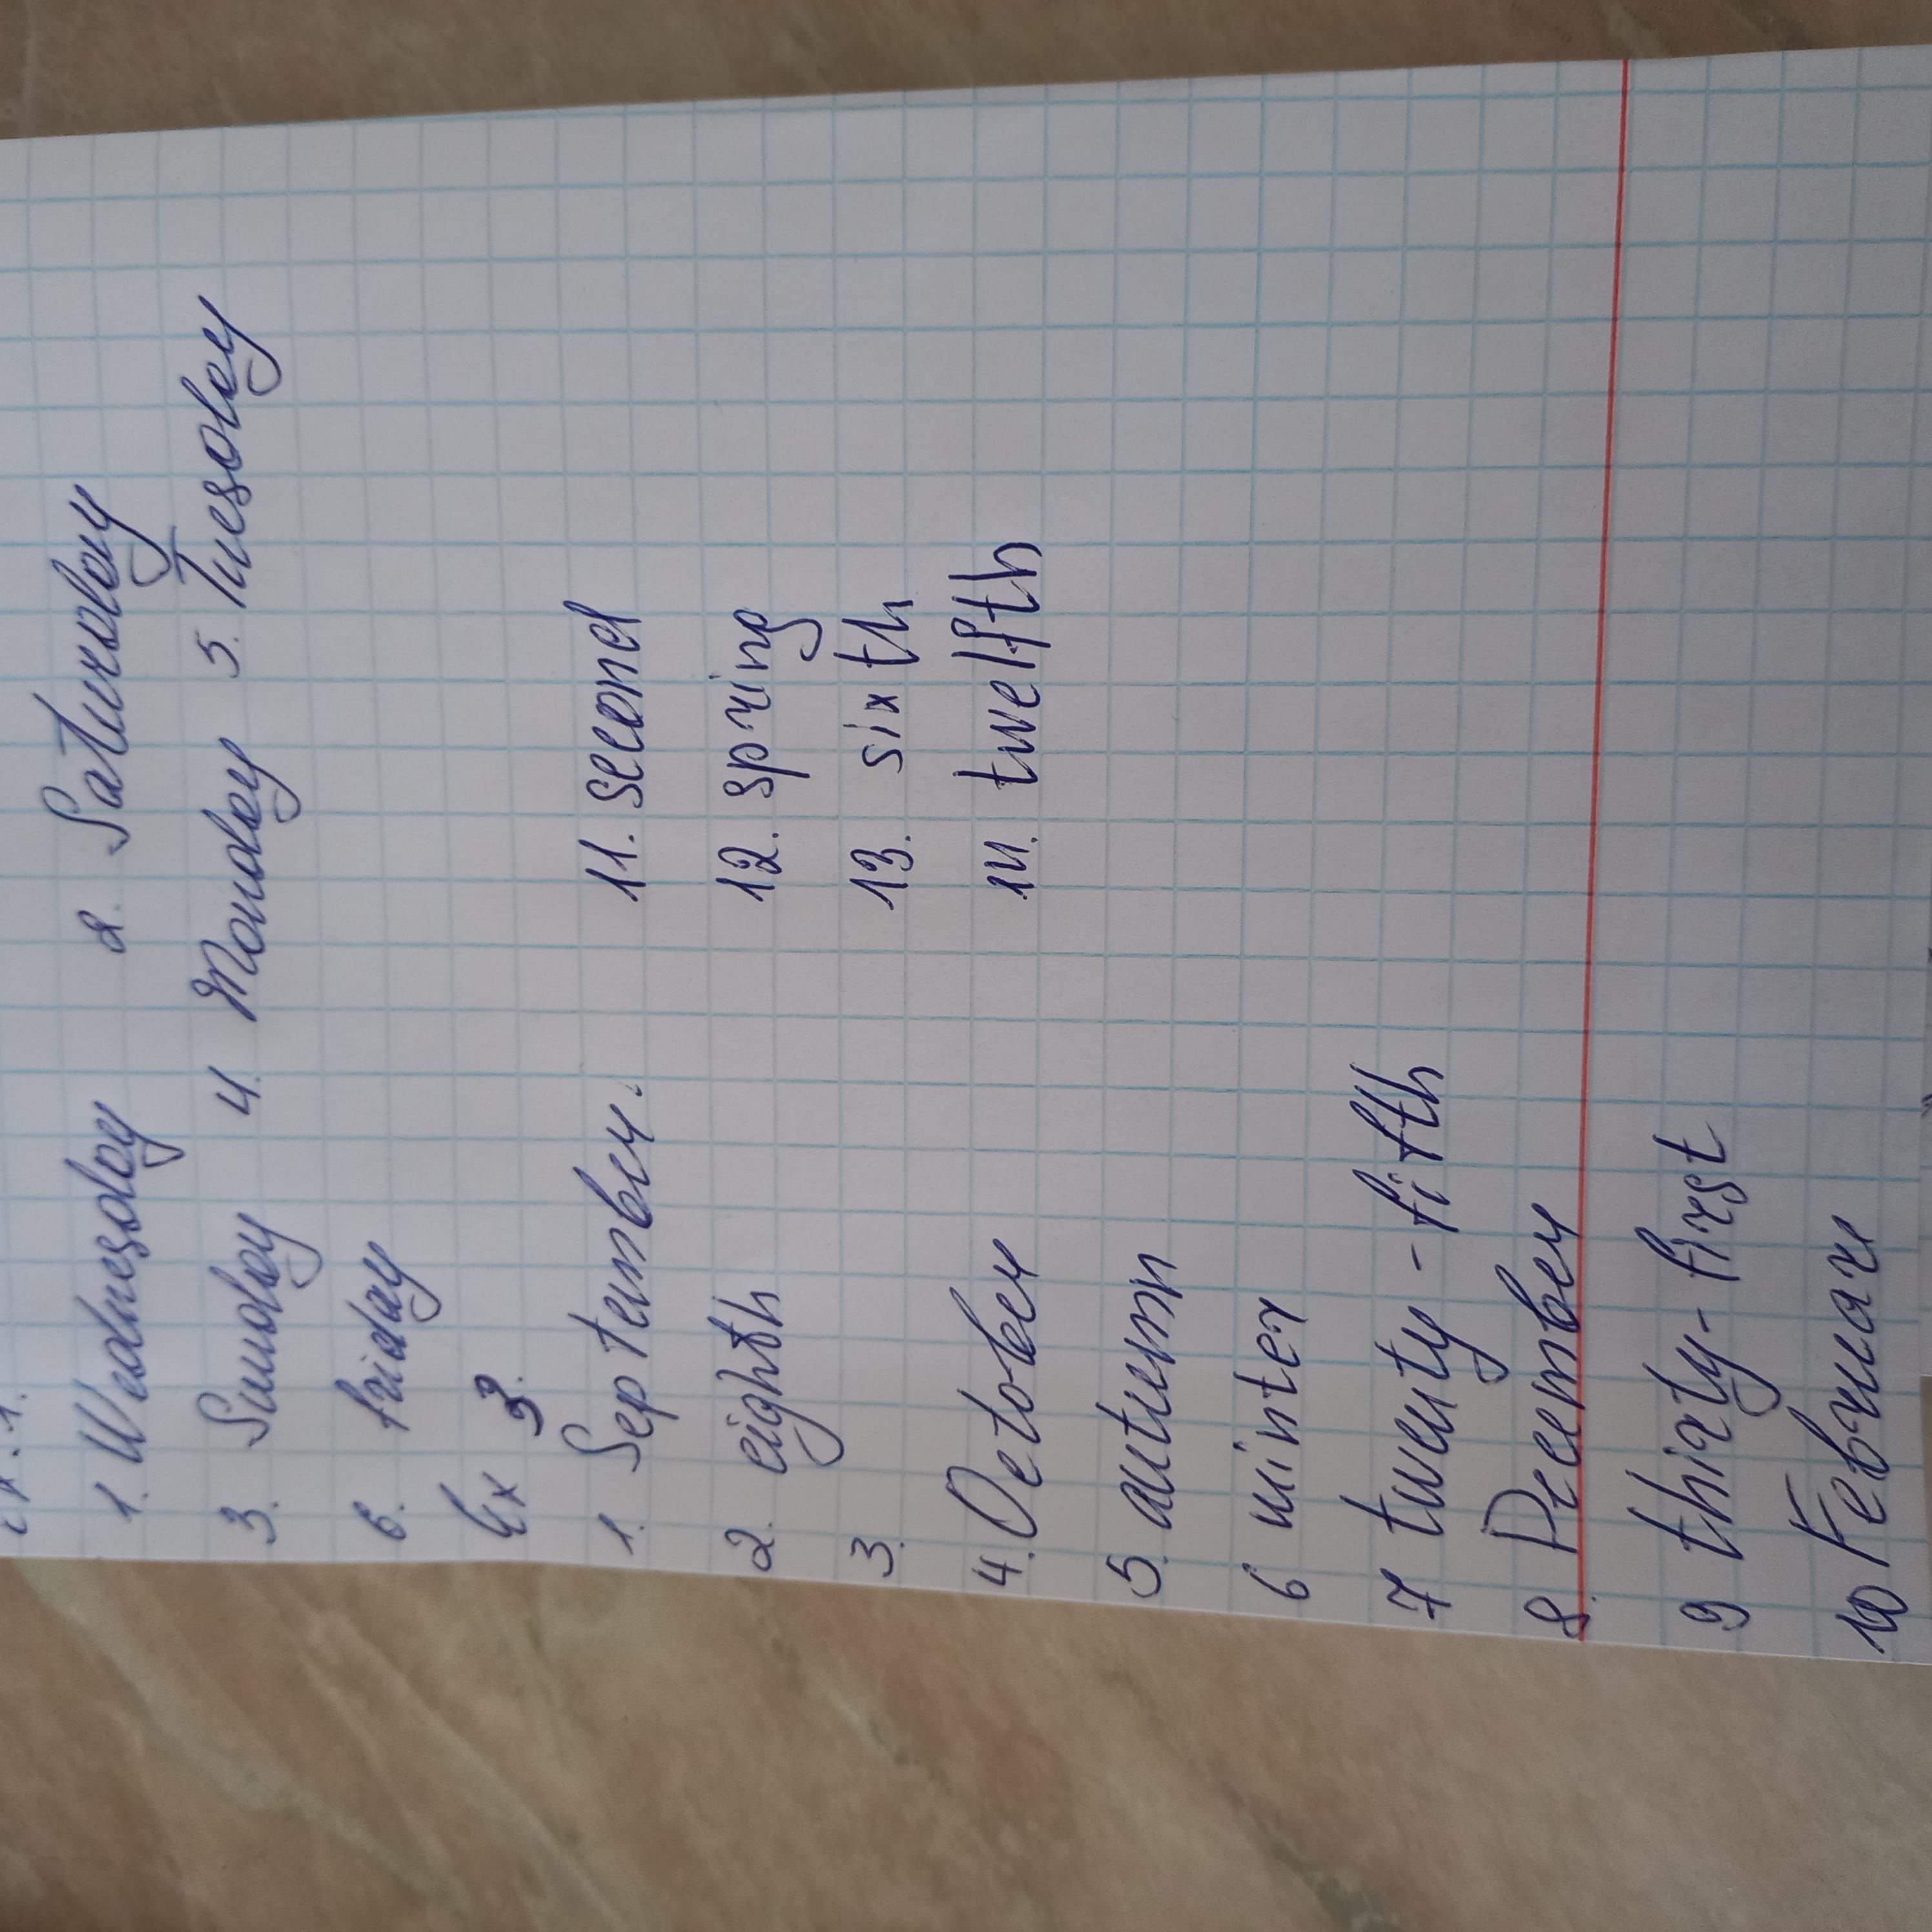 Ex. 1.
1. Wednesday 2. Saturday
3. Sunday 4. Monday 5. Tuesday
6. friday
Ex 3.
1. September. 11. second
2. eighth 12. spring
3. 13. sixth
4. October 14. twelfth
5. autumn
6 winter
7 twenty-fifth
8. December
9 thirty-first
10 Februar